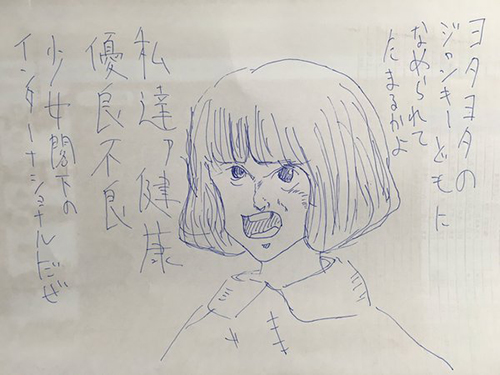 ヨタヨタの
ジャンキーどもに
なめられて
たまるかよ
私達ァ健康
優良不良
少女閣下の
インターナショナルだぜ